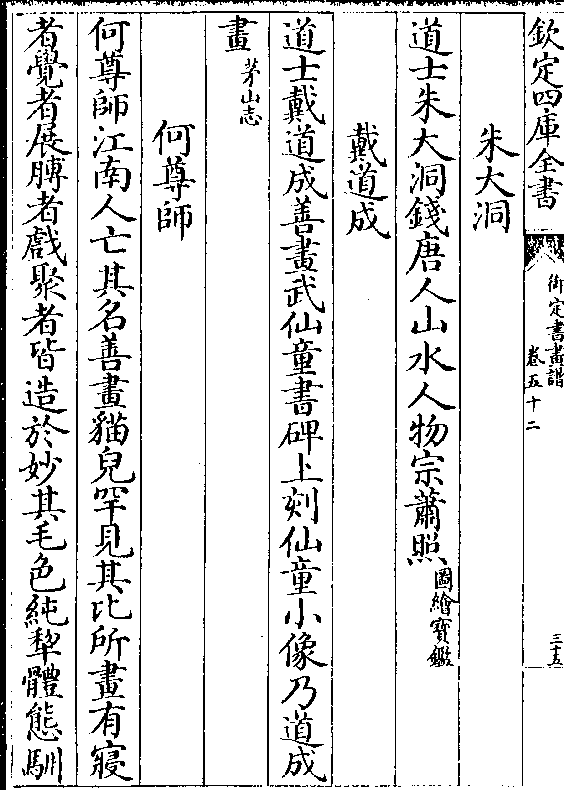 欽定四庫全書
御定書畫譜
卷五十二
三十五
朱大洞
道士朱大洞錢唐人山水人物宗蕭照圖繪寶鑑
戴道成
道士戴道成善畫武仙童書碑上刻仙童小像乃道成
畫茅山志
何尊師
何尊師江南人亡其名善畫貓兒罕見其比所畫有寢
者覺者展膊者戲聚者皆造於妙其毛色純犂體態馴